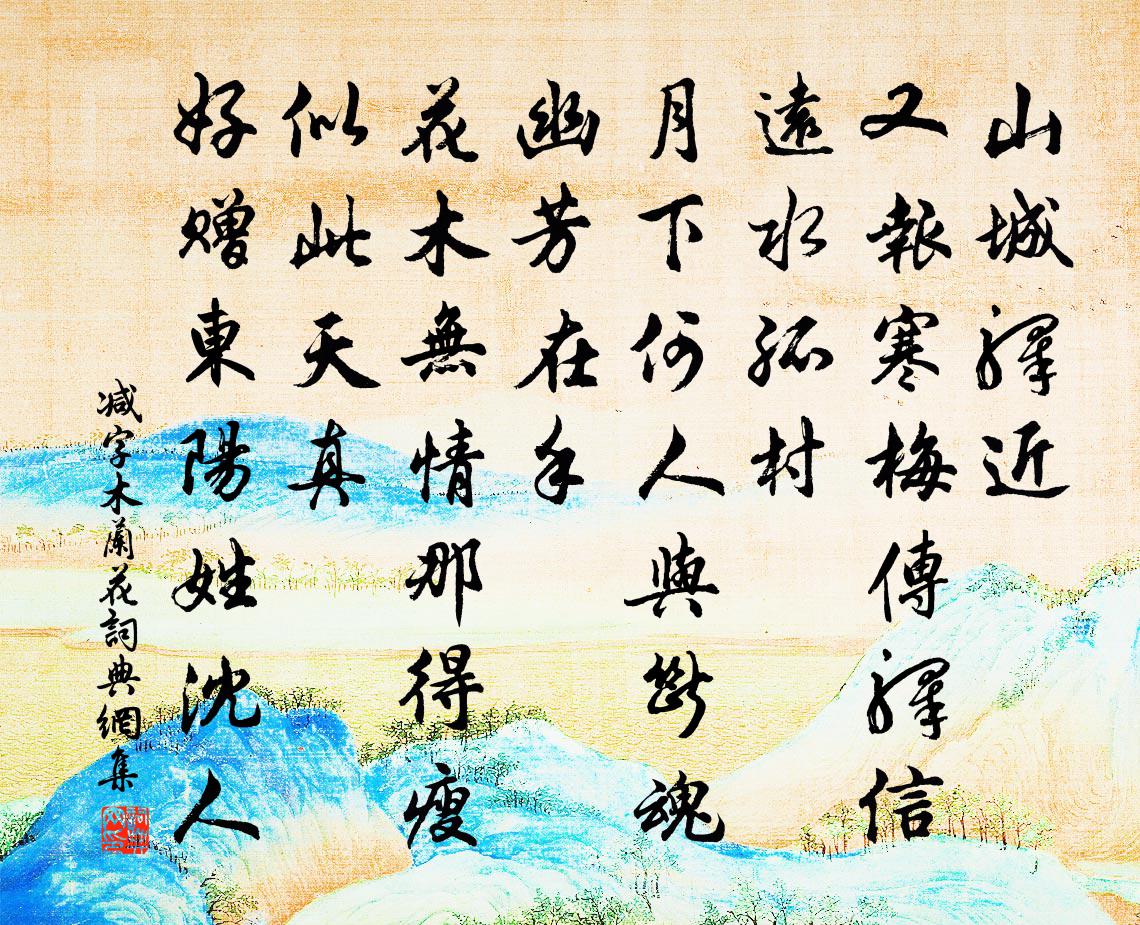 山城驛近
又報寒梅傳驛信
遠水孤村
月下何人與斷魂
幽芳在手
花木無情那得瘦
似此天真
好贈東陽姓沈人
减字木蘭花詞典網集